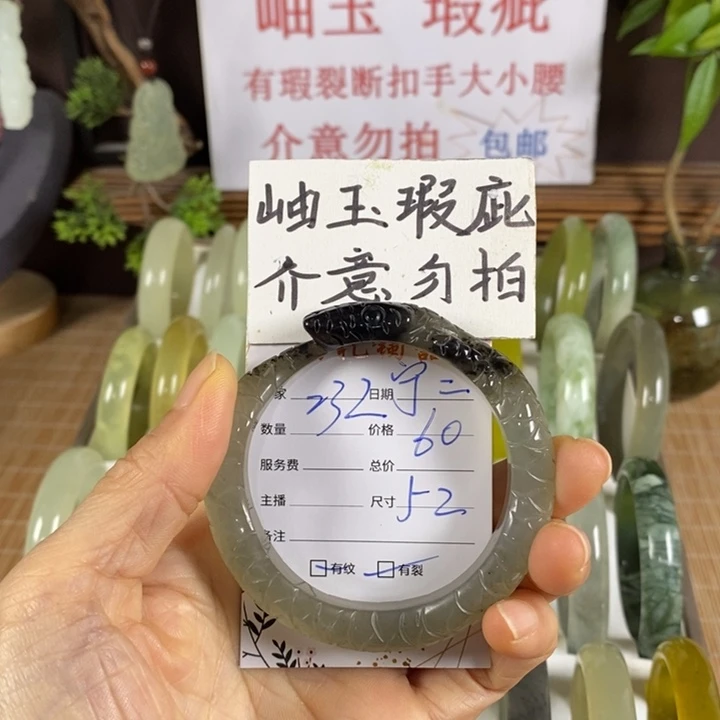 岫玉 瑕疵
有瑕裂断扣手大小腰
介意勿拍 包邮
岫玉瑕疵
介意勿拍
家 232 日期
数量 价格 60
服务费 总价
主播 尺寸 52
备注
有纹 有裂